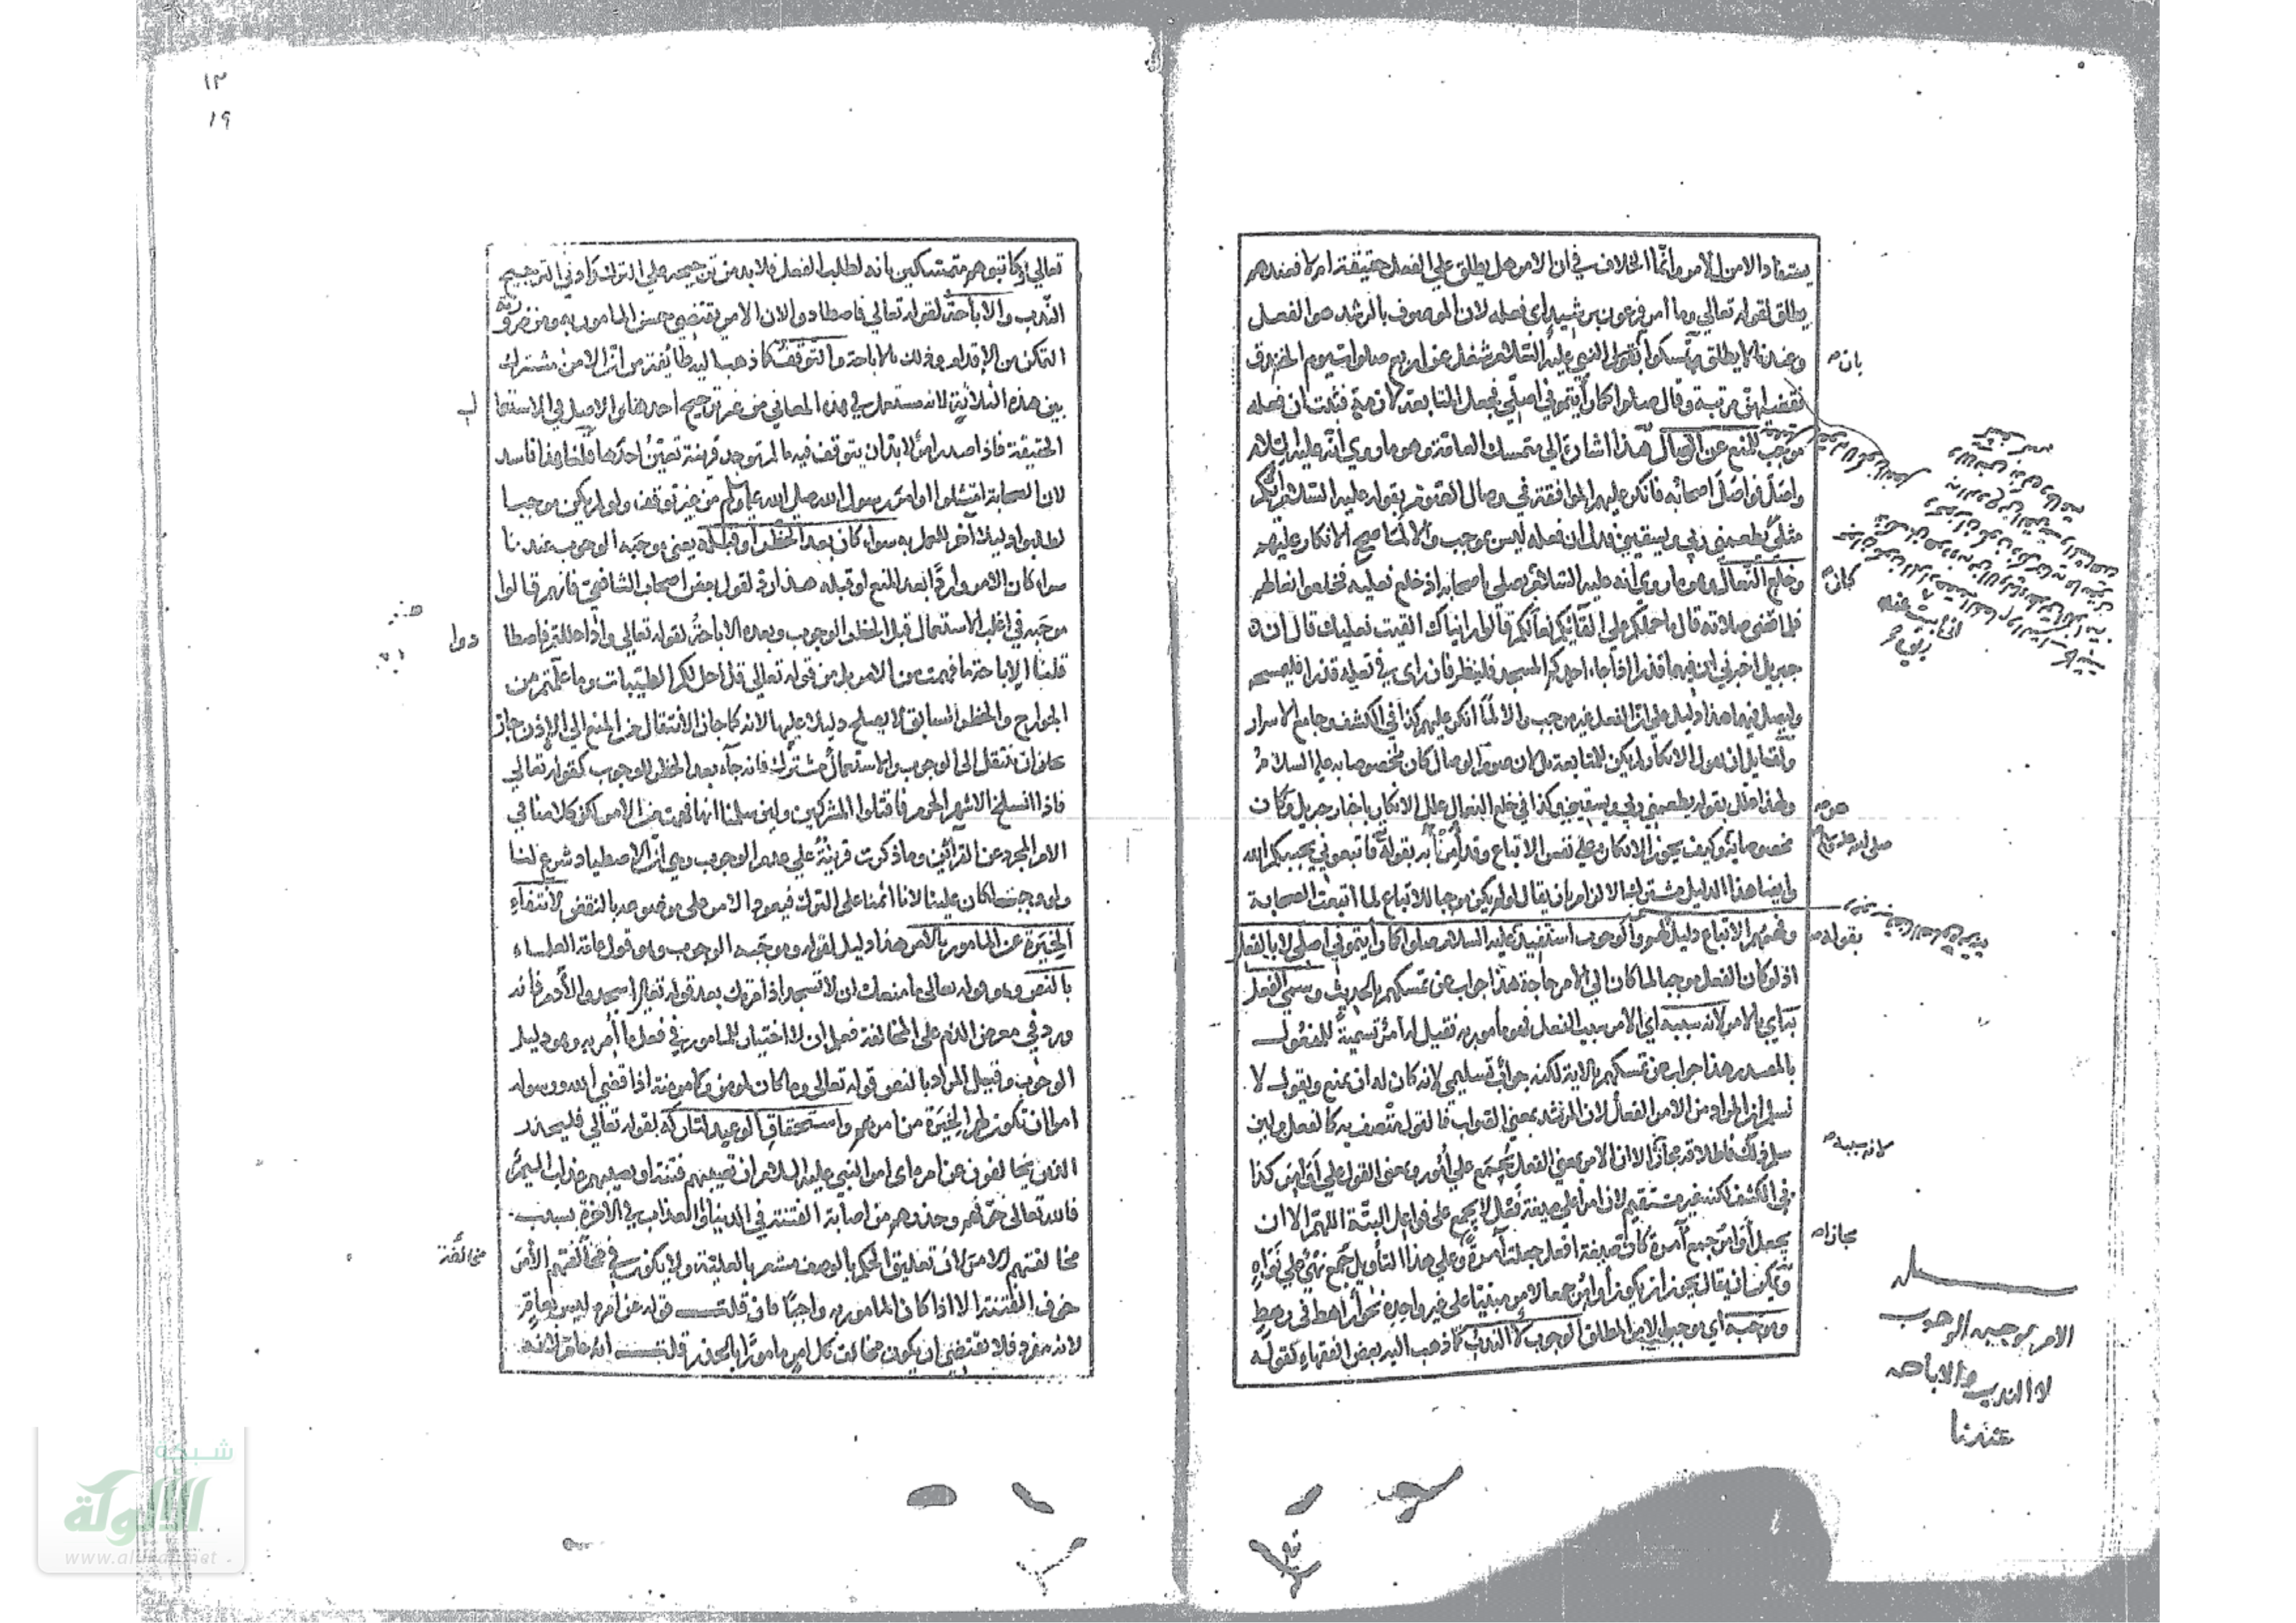 يستفاد الامن الامر وانما الخلاف في ان الامر هل يطلق علي الفعل حقيقة ام لا فعندهم
يطلق لقوله تعالي وما امر فرعون برشيد اي فعله لان الموصوف بالرشد هو الفعل
وعندنا لا يطلق تمسكوا بقول النبي عليه السلام شغل عن اربع صلوات يوم الخندق
فقضاهن مرتبة وقال صلوا كما رأيتموني اصلي فجعل المتابعة لازمة فثبت ان فعله
موجب للمنع عن الوصال هذا اشارة الي متمسك العامة وهو ما روي انه عليه السلام
واصل فواصل اصحابه فانكر عليهم الموافقة في وصال الصوم بقوله عليه السلام ايكم
مثلي يطعمني ربي ويسقيني فدل ان فعله ليس بموجب والا لما صح الانكار عليهم
وخلع النعال وهو ما روي انه عليه السلام يصلي باصحابه اذ خلع نعليه فخلعوا نعالهم
فلما قضي صلاته قال ما حملكم علي القائكم نعالكم قالوا رايناك القيت نعليك قال ان
جبريل اخبرني ان فيهما قذرا اذا جاء احدكم المسجد فلينظر فان راى في نعليه قذرا فليمسحه
وليصل فيهما هذا دليل علي ان الفعل غير موجب والا لما انكر عليهم كذا في الكشف وجامع الاسرار
ولقايل ان يقول الانكار لم يكن للمتابعة بل لان صوم الوصال كان مخصوصا به عليه السلام
ولهذا قال بقوله يطعمني ربي ويسقيني وكذا في خلع النعال علل الانكار باخبار جبريل وكان
مخصوصا به وكيف يجوز الانكار علي نفس الاتباع وقد امرنا به بقوله فاتبعوني يحببكم الله
وايضا هذا الدليل مشترك الالزام بان يقال لو لم يكن موجبا للاتباع لما اتبعت الصحابة
وفهمهم الاتباع دليل لهم والوجوب استفيد بقوله عليه السلام صلوا كما رأيتموني اصلي لا بالفعل
اذ لو كان الفعل موجبا لما كان الي الامر حاجة هذا جواب عن تمسكهم بالحديث وسمي الفعل
به اي بالامر لانه سببه اي الامر سبب الفعل فهو مأمور به فقيل له امر تسمية للمفعول
بالمصدر هذا جواب عن تمسكهم بالاية لكنه جواب تسليمي لانه كان له ان يمنع ويقول لا
نسلم ان المراد من الامر الفعل لان الرشد بمعني الصواب فالقول متصف به كالفعل ولين
سلم ذلك فاطلاقه مجازا الا ان الامر بمعني الفعل يجمع علي امور وبمعني القول علي اوامر كذا
في الكشف لكنه غير مستقيم لان امرا علي صيغة فعل لا يجمع علي فواعل البتة اللهم الا ان
يجعل اوامر جمع آمرة كان صيغة افعل جعلت آمرة وعلي هذا التأويل جمع نهي علي نواه
ويمكن ان يقال يجوز ان يكون اوامر جمعا لامر مبنيا علي غير واحده نحو اراهط في رهط
وموجبه اي موجب الامر المطلق الوجوب لا الندب كما ذهب اليه بعض الفقهاء كقوله
بان
كان
هو
صلي الله عليه وسلم
بقوله
لانه سببه
مجازا
الامر موجبه الوجوب
لا الندب والاباحه
عندنا
١٢
١٩
تعالي فكاتبوهم متمسكين بانه لطلب الفعل فلابد من ترجيحه علي الترك وادني الترجيح
الندب والاباحة لقوله تعالي فاصطادوا لان الامر يقتضي حسن المامور به ومن ضرورته
التمكن من الاقدام وذلك بالاباحة والتوقف كما ذهب اليه طائفة من ان الامر مشترك
بين هذه الثلاثة لانه مستعمل في هذه المعاني من غير ترجيح احدها والاصل في الاستعما
الحقيقة فاذا صدر امر لابد ان يتوقف فيه ما لم توجد قرينة تعين احدها قلنا هذا فاسد
لان الصحابة امتثلوا اوامر رسول الله صلي الله عليه وسلم من غير توقف ولو لم يكن موجبا
لطلبوا دليلا آخر للعمل به سواء كان بعد الحظر او قبله يعني موجبه الوجوب عندنا
سواء كان الامر واردا بعد المنع او قبله هذا رد لقول بعض اصحاب الشافعي فانهم قالوا
موجبه في اغلب الاستعمال قبل الحظر الوجوب وبعده الاباحة لقوله تعالي واذا حللتم فاصطا
دوا
قلنا الاباحة ما فهمت من الامر بل من قوله تعالي قل احل لكم الطيبات وما علمتم من
الجوارح والحظر السابق لا يصلح دليلا عليها لانه كما جاز الانتقال من المنع الي الاذن جاز
علي ان ينتقل الى الوجوب والاستعمال مشترك فانه جآء بعد الحظر للوجوب كقوله تعالي
فاذا انسلخ الاشهر الحرم فاقتلوا المشركين ولين سلمنا انها فهمت من الامر لكن كلامنا في
الامر المجرد عن القرائن وما ذكرت قرينة علي عدم الوجوب وهي ان الاصطياد شرع لنا
ولو وجب لكان علينا لانا اثمنا على الترك فيعود الامر علي موضوعه بالنقض لانتفاء
الخيرة عن المامور بالامر هذا دليل لقوله وموجبه الوجوب وهو قول عامة العلماء
بالنص وهو قوله تعالى ما منعك ان لا تسجد اذ امرتك بعد قوله تعالي اسجدوا لآدم فانه
ورد في معرض الذم على المخالفة فعلم ان لا اختيار للمامور في فعل ما امر به وهو دليل
الوجوب وقيل المراد بالنص قوله تعالى وما كان لمومن ولا مومنة اذا قضي الله ورسوله
امرا ان تكون لهم الخيرة من امرهم واستحقاق الوعيد لتاركه لقوله تعالي فليحذر
الذين يخالفون عن امره اى امر النبي عليه السلام ان تصيبهم فتنة او يصيبهم عذاب اليم
فالله تعالى خوفهم وحذرهم من اصابة الفتنة في الدنيا والعذاب في الاخرة بسبب
مخالفتهم الامر لان تعليق الحكم بالوصف مشعر بالعلية ولا يكون في مخالفتهم الامر
خوف الفتنة الا اذا كان المامور به واجبا فان قلت قوله عن امره ليس بعام
لانه مفرد فلا يقتضي ان يكون مخالف كل امر مامورا بالحذر قلت انه عام لانه
مخالفة
شبكة
الألوكة
www.alukah.net